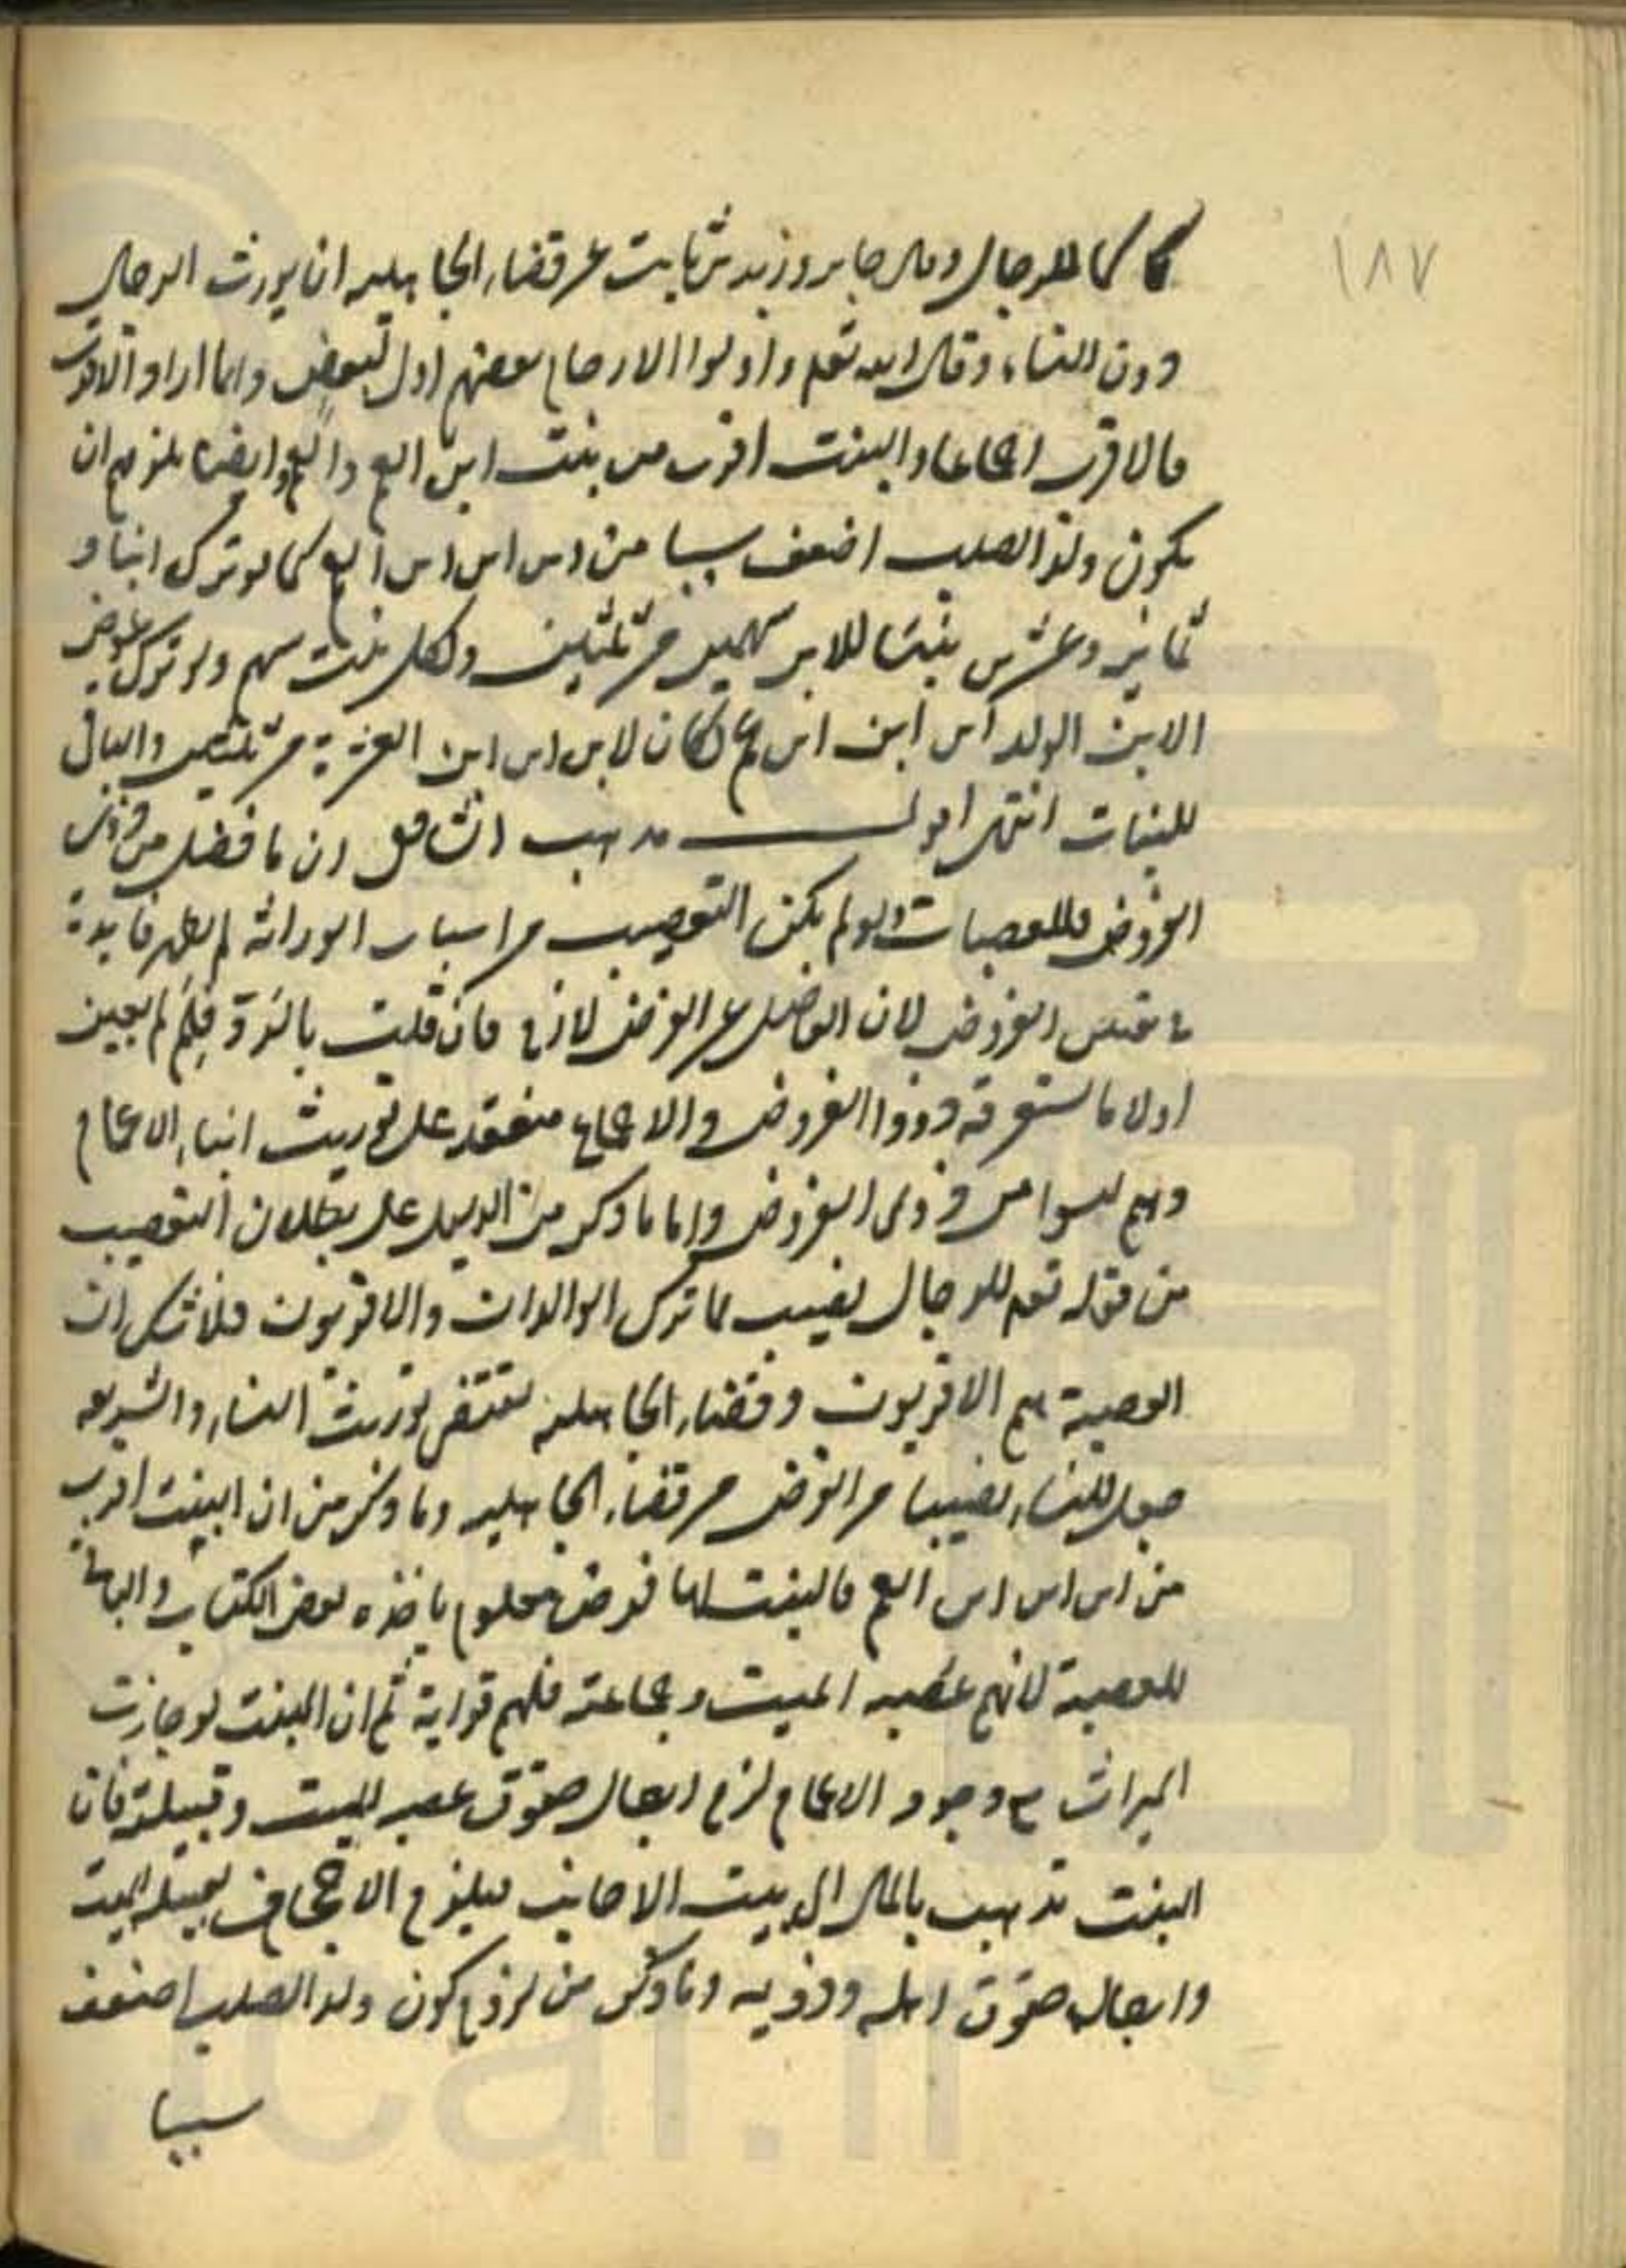 ١٨٧
كما للرجال وقال جابر وزيد بن ثابت من قضاء الجاهلية ان يورث الرجال
دون النساء وقال الله تعم واولوا الارحام بعضهم اولى ببعض وانما اراد الاقرب
فالاقرب اجماعا والبنت اقرب من بنت ابن العم والعم وايضا يلزم ان
يكون ولد الصلب اضعف سببا من ابن ابن ابن العم كما لو ترك ابنا و
ثمانية وعشرين بنتا للابن سهمين من ثلثين ولكل بنت سهم ولو ترك عوض
الابن الولد ابن ابن ابن عم لكان لابن ابن ابن العم عشرة من ثلثين والباقي
للبنات انتهى اقول مذهب الشافعي ان ما فضل من ذوي
الفروض فللعصبات ولو لم يكن التعصيب من اسباب الوراثة لم يظهر فايدة
الفروض لان الفاضل عن الفرض لازم فان قلت بالرد فلم لم يعين
اولا ما يستغرقه ذووا الفروض والاجماع منعقد على توريث ابناء الاعمام
وهم ليسوا من ذوى الفروض واما ما ذكر من الدليل على بطلان التعصيب
من قوله تعم للرجال نصيب مما ترك الوالدان والاقربون فلا شك ان
العصبة هم الاقربون وقضاء الجاهلية يقتضى توريث النساء والشريعة
جعل للنساء نصيبا من الفرض من قضاء الجاهلية وما ذكر من ان البنت اقرب
من ابن ابن ابن العم فالبنت لها فرض معلوم ياخذه بعض الكتاب والباقي
للعصبة لانهم عصبة الميت وجماعته فلهم قرابة ثم ان البنت لو حازت
الميراث مع وجود الاعمام لزم ابطال حقوق عصبه الميت وقبيلته فان
البنت تذهب بالمال الى بيت الاجانب فيلزم الاجحاف بقبيلة الميت
وابطال حقوق اهله وذويه وما ذكر من لزوم كون ولد الصلب اضعف
سببا